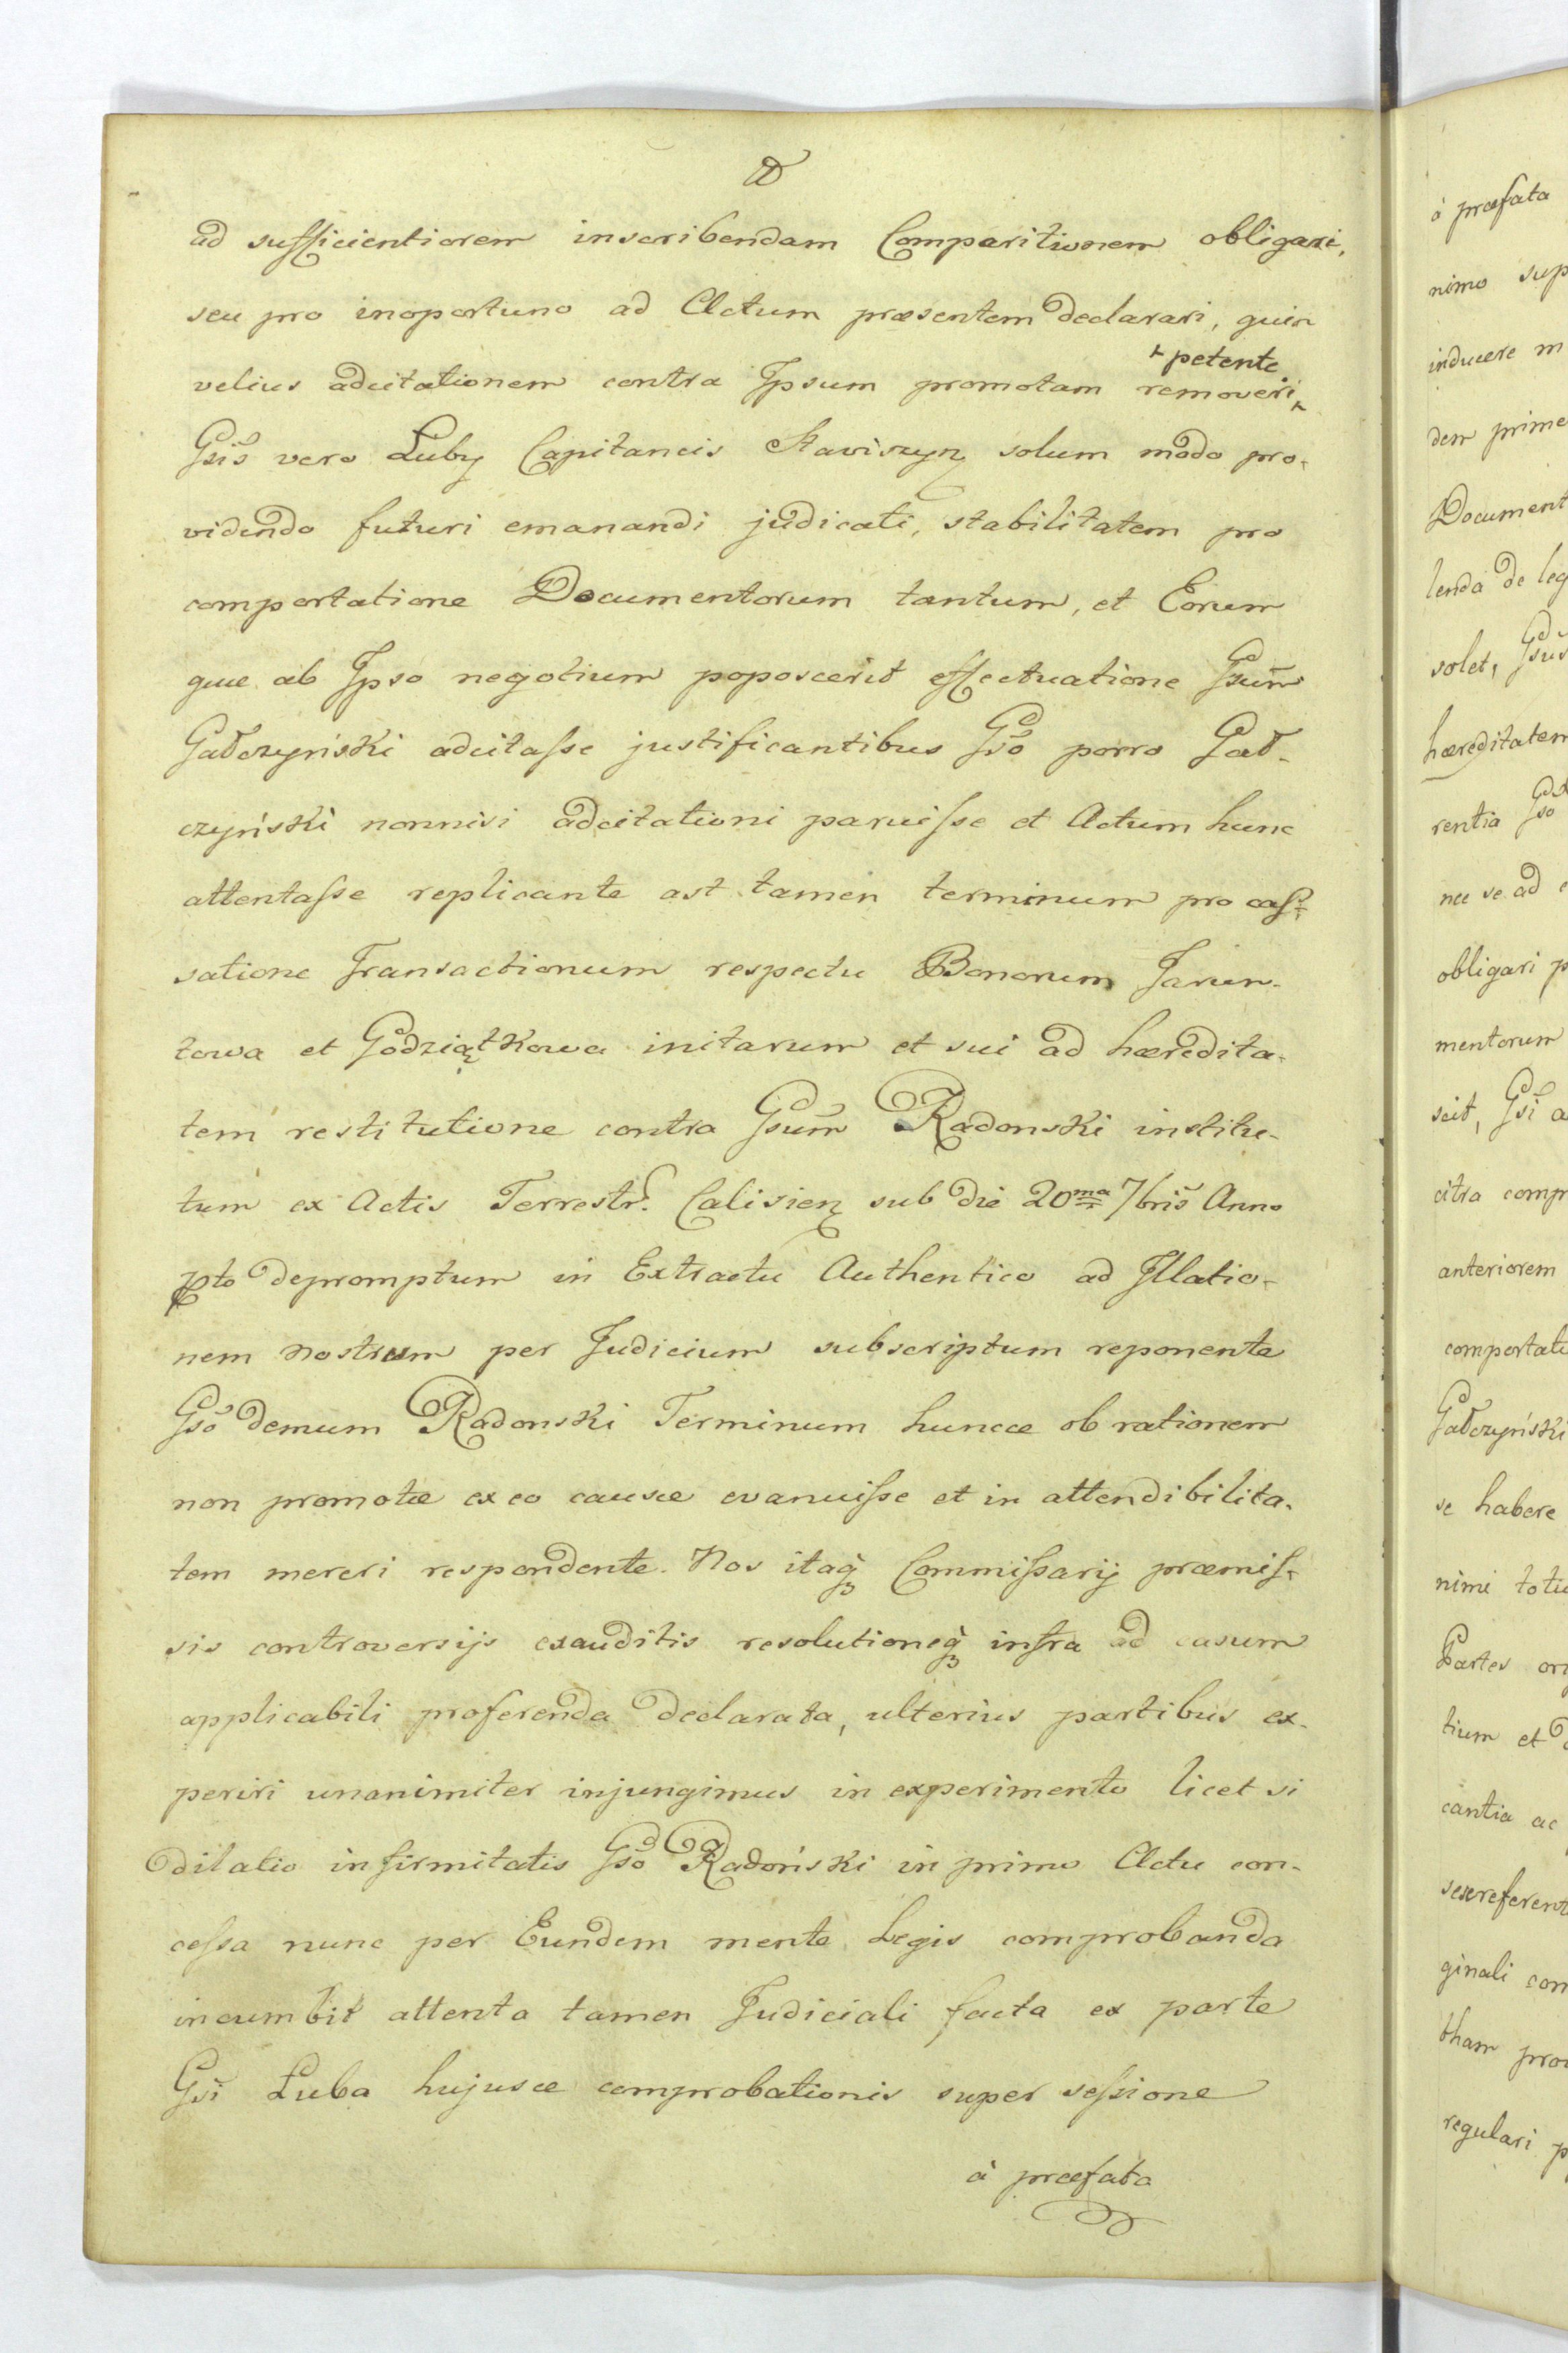 ad sufficientiorem inscribendam Comparitionem obligari,
seu pro inoportuno ad Actum præsentem declarari, quin
velius adcitationem contra Ipsum promotam removeri petente
Gsis vero Luby Capitaneis Stawiszyn solum modo pro-
videndo futuri emanandi judicati, stabilitatem pro
comportatione Documentorum tantum, et Eorum
quæ ab Ipso negotium poposcerit effectuatione Gsum
Gałczyński adcitaſse justificantibus Gso porro Gał-
czyński nonnisi adcitationi paruiſse et Actum hunc
attentaſse replicante ast tamen terminum pro caſ-
satione Transactionum respectu Bonorum Jarun-
towa et Godziątkowa initarum et sui ad hæredita-
tem restitutione contra Gsum Radonski institu-
tum ex Actis Terrestr. Calisien sub die 20ma 7bris Anno
pto depromptum in Extractu Authentico ad Illatio-
nem nostram per Judicium subscriptum reponente
Gso demum Radonski Terminum huncce ob rationem
non promotæ ex eo causæ evanuiſse et in attendibilita-
tem mereri respondente. Nos itaq Commiſsarij præmiſ-
sis controversijs exauditis resolutioneq infra ad casum
applicabili proferenda declarata, ulterius partibus ex-
periri unanimiter injungimus in experimento licet si
dilatio infirmitatis Gso Radoński in primo Actu con-
ceſsa nunc per Eundem mente Legis comprobanda
incumbit attenta tamen Judiciali facta ex parte
Gsi Luba hujusce comprobationis super seſsione
à præfata
à præfata
nimo sup
inducere m
dem prime
Document
lenda de leg
solet, Gsus
hæreditatem
rentia Gso
nec se ad
obligari p
mentorum
scit, Gsi a
citra comp
anteriorem
comportati
Gałczyński
se habere
nimi totiu
Partes ori
tium et
cantia ac
sesereferent
ginali con
tham pro
regulari p